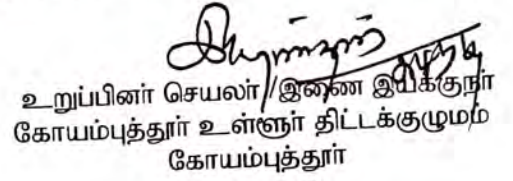 உறுப்பினர் செயலர்/இணை இயக்குநர்
கோயம்புத்தூர் உள்ளூர் திட்டக்குழுமம்
கோயம்புத்தூர்